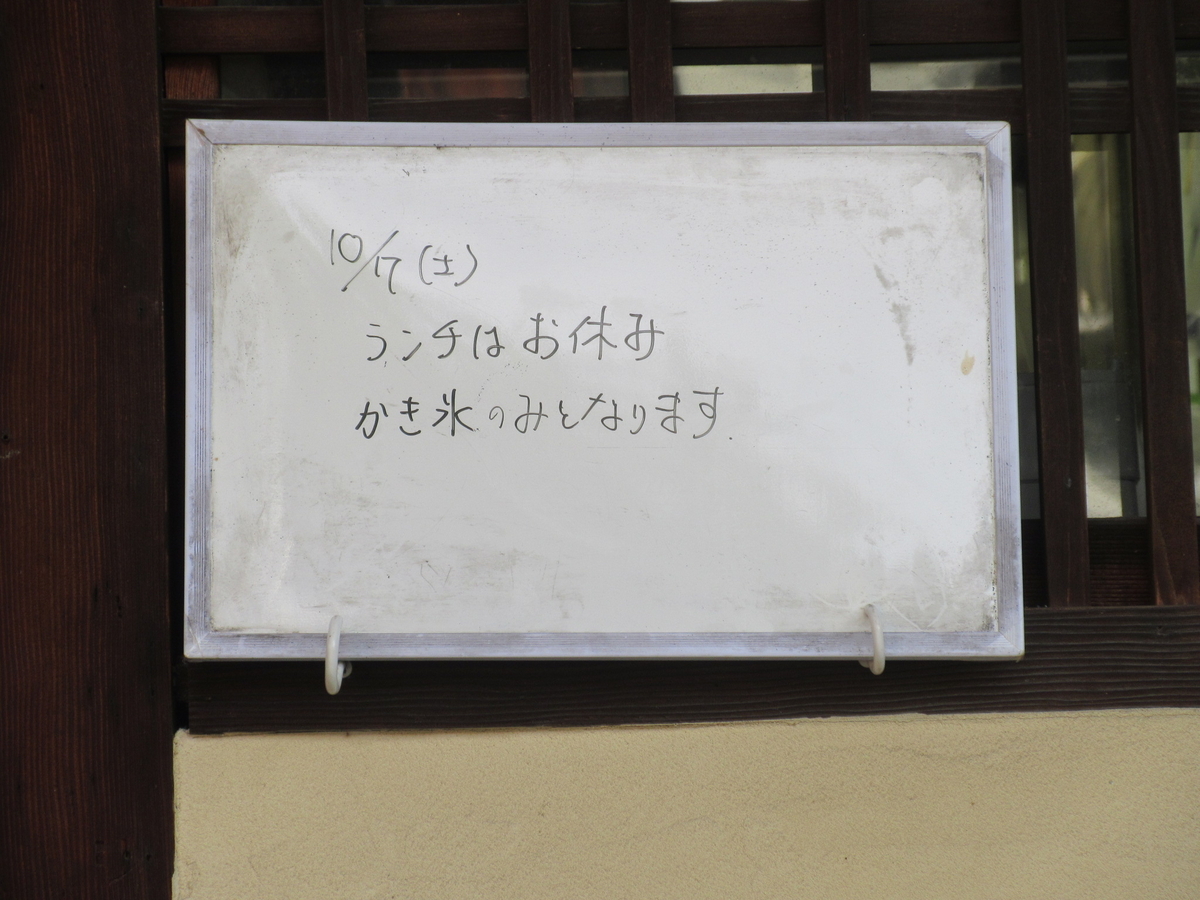 10/17(土)
ランチはお休み
かき氷のみとなります.